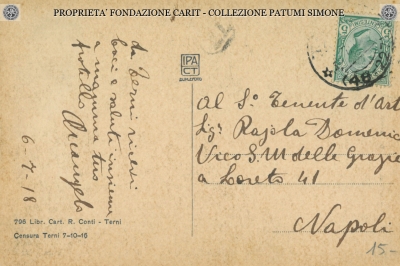 PROPRIETA' FONDAZIONE CARIT - COLLEZIONE PATUMI SIMONE
da Terni ricevi
baci e saluti insiem
a mamma tuo
fratello Arcangelo
6-7-18
796 Libr. Cart. R. Conti - Terni
Censura Terni 7-10-16
IPA
CT
5
(48-22)
Al S. Tenente d'Art
Sig. Rajola Domenic
Vico S. M delle Grazie
a Loreto 41
Napoli
15-